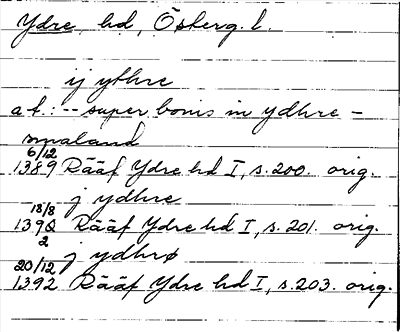 Ydre hd, Österg. l.
ij ythre
at.: -- super bonis in ydhre -
smaland
6/12
1389 Rääf Ydre hd I, s. 200. orig.
j ydhre
18/8
1390 Rääf Ydre hd I, s. 201. orig.
2 j ydhrø
20/12
1392 Rääf Ydre hd I, s. 203. orig.